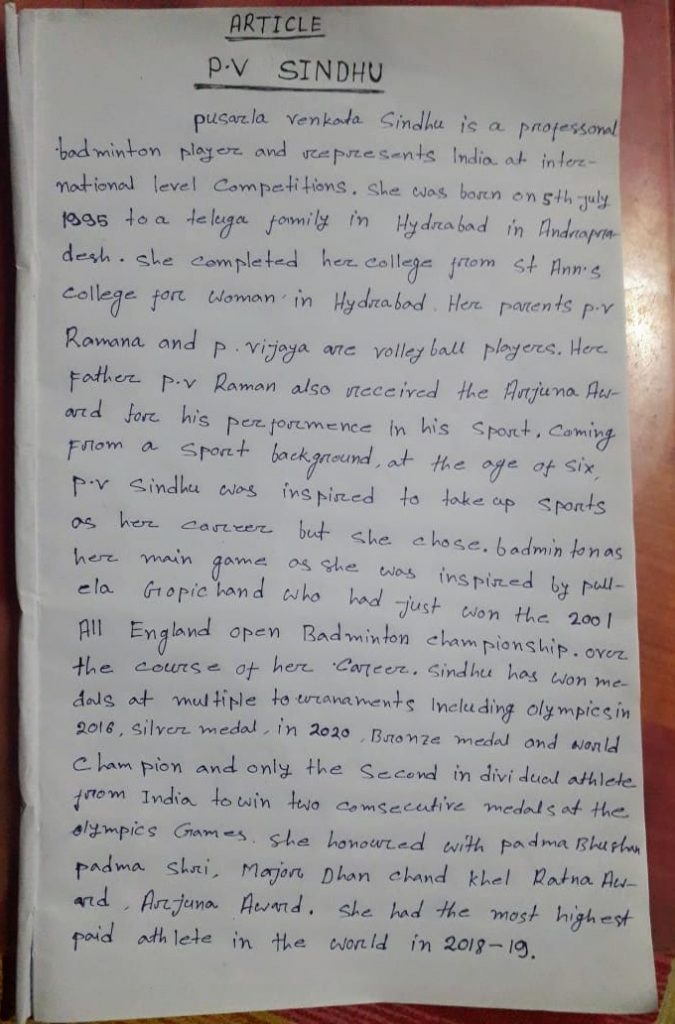 ARTICLE
P.V SINDHU
pusarla venkata Sindhu is a professonal
badminton player and represents India at inter-
national level Competitions. She was born on 5th july
1995 to a teluga family in Hydrabad in Andrapra-
desh. she completed her college from St Ann's
College for woman in Hydrabad. Her parents p.v
Ramana and p. vijaya are volley ball players. Her
Father p.v Raman also received the Arjuna Aw-
ard for his performence In his Sport. Coming
From a Sport background, at the age of Six,
P.V Sindhu was inspired to take up Sports
as her carrer but she chose. badminton as
her main game as she was inspired by pull-
ela Gopichand who had just won the 2001
All England open Badminton championship. over
the course of her Career. Sindhu has won me-
dals at multiple touranaments Including olympics in
2016, Silver medal, in 2020, Bronze medal and world
Champion and only the Second individual athlete
from India to win two comsecutive medals at the
olympics Games. She honoured with padma Bhushan
padma Shri, Major Dhan chand khel Ratna Aw-
ard, Arjuna Award. She had the most highest
paid athlete in the world in 2018-19.